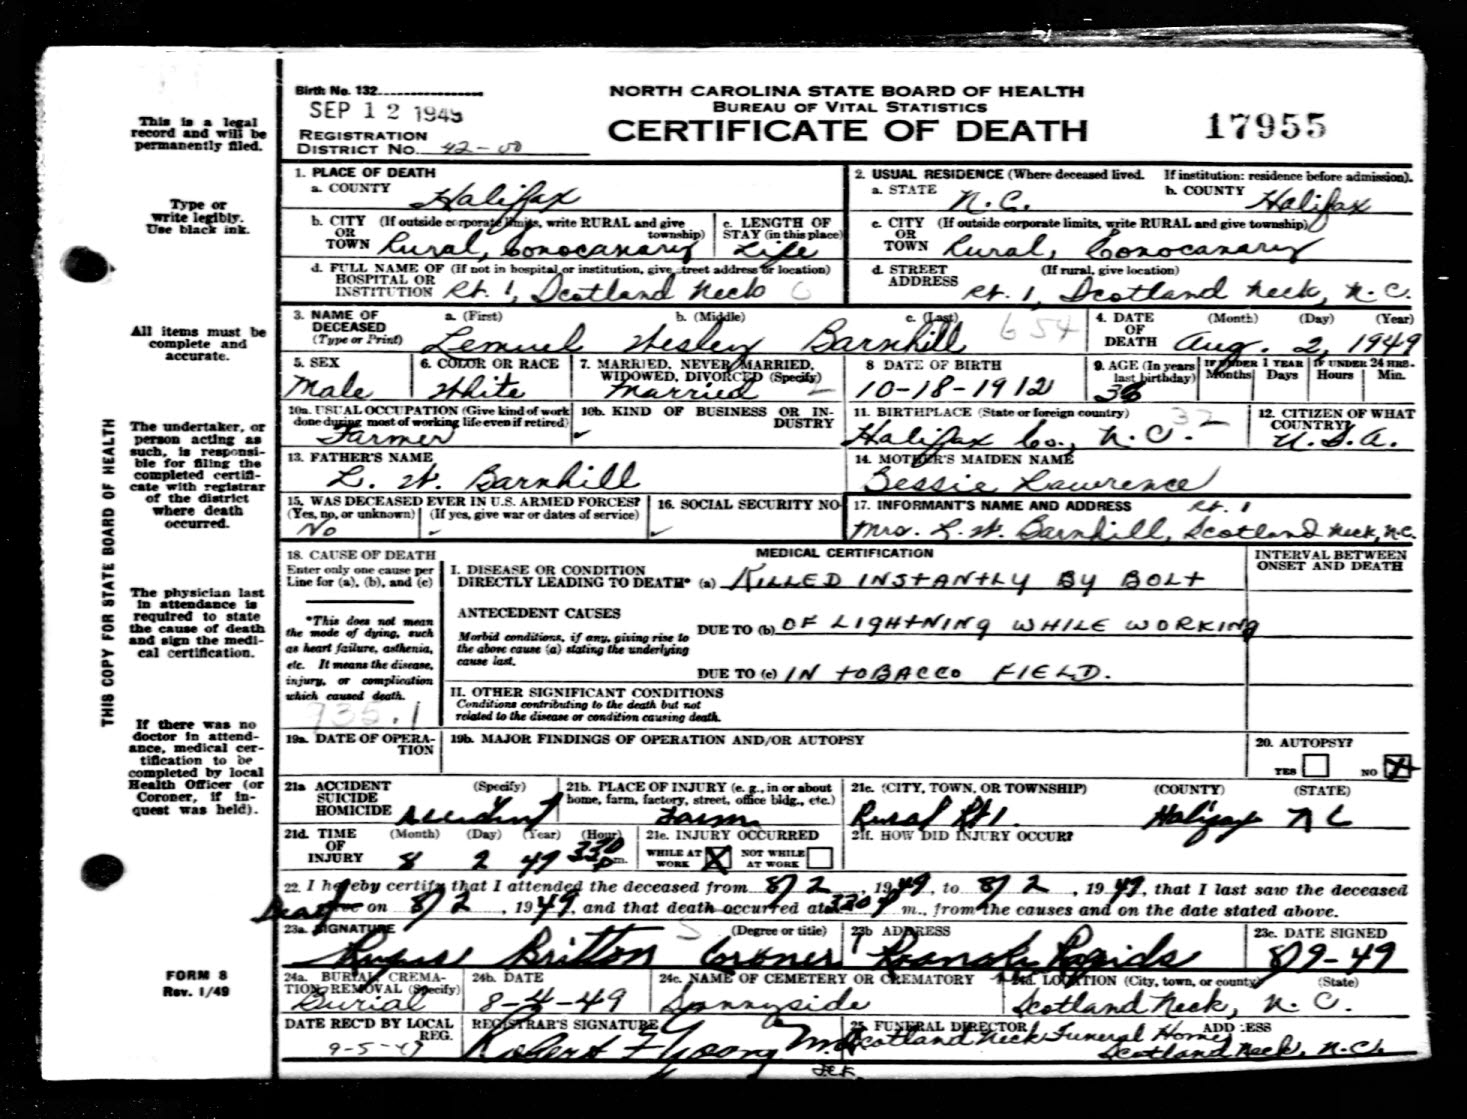 Birth No. 132
SEP 12 1949
REGISTRATION
DISTRICT No. 42-00
NORTH CAROLINA STATE BOARD OF HEALTH
BUREAU OF VITAL STATISTICS
CERTIFICATE OF DEATH
17955
This is a legal
record and will be
permanently filed.
Type or
write legibly.
Use black ink.
All items must be
complete and
accurate.
The undertaker, or
person acting as
such, is responsi-
ble for filing the
completed certifi-
cate with registrar
of the district
where death
occurred.
The physician last
in attendance is
required to state
the cause of death
and sign the medi-
cal certification.
If there was no
doctor in attend-
ance, medical cer-
tification to be
completed by local
Health Officer (or
Coroner, if in-
quest was held).
FORM 8
Rev. 1/49
THIS COPY FOR STATE BOARD OF HEALTH
1. PLACE OF DEATH
a. COUNTY Halifax
b. CITY (If outside corporate limits, write RURAL and give
OR township)
TOWN Rural, Conocanary
c. LENGTH OF
STAY (in this place)
Life
d. FULL NAME OF (If not in hospital or institution, give street address or location)
HOSPITAL OR
INSTITUTION Rt. 1, Scotland Neck
2. USUAL RESIDENCE (Where deceased lived. If institution: residence before admission).
a. STATE N.C.
b. COUNTY Halifax
c. CITY (If outside corporate limits, write RURAL and give township)
OR
TOWN Rural, Conocanary
d. STREET (If rural, give location)
ADDRESS Rt. 1, Scotland Neck, N.C.
3. NAME OF
DECEASED
(Type or Print)
a. (First) b. (Middle) c. (Last)
Lemuel Wesley Barnhill
654
4. DATE (Month) (Day) (Year)
OF
DEATH Aug. 2, 1949
5. SEX
Male
6. COLOR OR RACE
White
7. MARRIED, NEVER MARRIED,
WIDOWED, DIVORCED (Specify)
Married 2
8 DATE OF BIRTH
10-18-1912
9. AGE (In years
last birthday)
36
IF UNDER 1 YEAR
Months Days
IF UNDER 24 HRS.
Hours Min.
10a. USUAL OCCUPATION (Give kind of work
done during most of working life even if retired)
Farmer
10b. KIND OF BUSINESS OR IN-
DUSTRY
11. BIRTHPLACE (State or foreign country)
Halifax Co., N.C. 32
12. CITIZEN OF WHAT
COUNTRY?
U.S.A.
13. FATHER'S NAME
L. W. Barnhill
14. MOTHER'S MAIDEN NAME
Bessie Lawrence
15. WAS DECEASED EVER IN U.S. ARMED FORCES?
(Yes, no, or unknown) (If yes, give war or dates of service)
No -
16. SOCIAL SECURITY NO
17. INFORMANT'S NAME AND ADDRESS Rt. 1
Mrs. L. W. Barnhill, Scotland Neck, N.C.
18. CAUSE OF DEATH
Enter only one cause per
Line for (a), (b), and (c)
*This does not mean
the mode of dying, such
as heart failure, asthenia,
etc. It means the disease,
injury, or complication
which caused death.
935.1
MEDICAL CERTIFICATION
INTERVAL BETWEEN
ONSET AND DEATH
I. DISEASE OR CONDITION
DIRECTLY LEADING TO DEATH* (a) KILLED INSTANTLY BY BOLT
ANTECEDENT CAUSES
Morbid conditions, if any, giving rise to
the above cause (a) stating the underlying
cause last.
DUE TO (b) OF LIGHTNING WHILE WORKING
DUE TO (c) IN TOBACCO FIELD.
II. OTHER SIGNIFICANT CONDITIONS
Conditions contributing to the death but not
related to the disease or condition causing death.
19a. DATE OF OPERA-
TION
19b. MAJOR FINDINGS OF OPERATION AND/OR AUTOPSY
20. AUTOPSY?
YES NO X
21a ACCIDENT (Specify)
SUICIDE
HOMICIDE Accident
21b. PLACE OF INJURY (e. g., in or about
home, farm, factory, street, office bldg., etc.)
Farm
21c. (CITY, TOWN, OR TOWNSHIP) (COUNTY) (STATE)
Rural Rt 1. Halifax N C
21d. TIME (Month) (Day) (Year) (Hour)
OF
INJURY 8 2 49 330 p m.
21e. INJURY OCCURRED
WHILE AT WORK X NOT WHILE AT WORK
21f. HOW DID INJURY OCCUR?
22. I hereby certify that I attended the deceased from 8/2, 1949, to 8/2, 1949, that I last saw the deceased
Dead on 8/2, 1949, and that death occurred at 330 P m., from the causes and on the date stated above.
23a. SIGNATURE (Degree or title)
Rufus Britton Coroner
23b ADDRESS
Roanoke Rapids
23c. DATE SIGNED
8/9-49
24a. BURIAL, CREMA-
TION, REMOVAL (Specify)
Burial
24b. DATE
8-4-49
24c. NAME OF CEMETERY OR CREMATORY
Sunnyside
24d. LOCATION (City, town, or county) (State)
Scotland Neck, N.C.
DATE REC'D BY LOCAL
REG.
9-5-49
REGISTRAR'S SIGNATURE
Robert F Young M.D.
25. FUNERAL DIRECTOR ADDRESS
Scotland Neck Funeral Home
Scotland Neck, N.C.